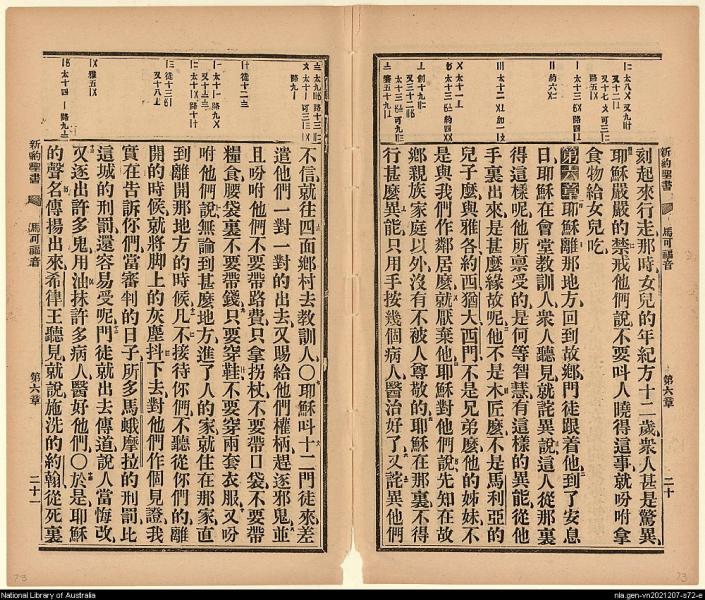 刻起來行走那時女兒的年紀方十二歲衆人甚是驚異
耶穌嚴嚴的禁戒他們說不要呌人曉得這事就吩咐拿
食物給女兒吃
第六章耶穌離那地方回到故鄉門徒跟着他到了安息
日耶穌在會堂教訓人衆人聽見就詫異說這人從那裏
得這樣呢他所禀受的是何等智慧有這樣的異能從他
手裏出來是甚麼緣故呢他不是木匠麼不是馬利亞的
兒子麼與雅各約西猶大西門不是兄弟麼他的姊妹不
是與我們作鄰居麼就厭棄他耶穌對他們說先知在故
鄉親族家庭以外沒有不被人尊敬的耶穌在那裏不得
行甚麼異能只用手按幾個病人醫治好了又詫異他們
新約聖書
馬可福音
第六章
二十
不信就往四面鄉村去教訓人〇耶穌呌十二門徒來差
遣他們一對一對的出去又賜給他們權柄趕逐邪鬼並
且吩咐他們不要帶路費只拿拐杖不要帶口袋不要帶
糧食腰袋裏不要帶錢只要穿鞋不要穿兩套衣服又吩
咐他們說無論到甚麼地方進了人的家就住在那家直
到離開那地方的時候凡不接待你們不聽從你們的離
開的時候就將脚上的灰塵抖下去對他們作個見證我
實在告訴你們當審判的日子所多馬蛾摩拉的刑罰比
這城的刑罰還容易受呢門徒就出去傳道說人當悔改
又逐出許多鬼用油抹許多病人醫好他們〇於是耶穌
的聲名傳揚出來希律王聽見就說施洗的約翰從死裏
新約聖書
馬可福音
第六章
二十一
National Library of Australia
nla.gen-vn2021207-s72-e